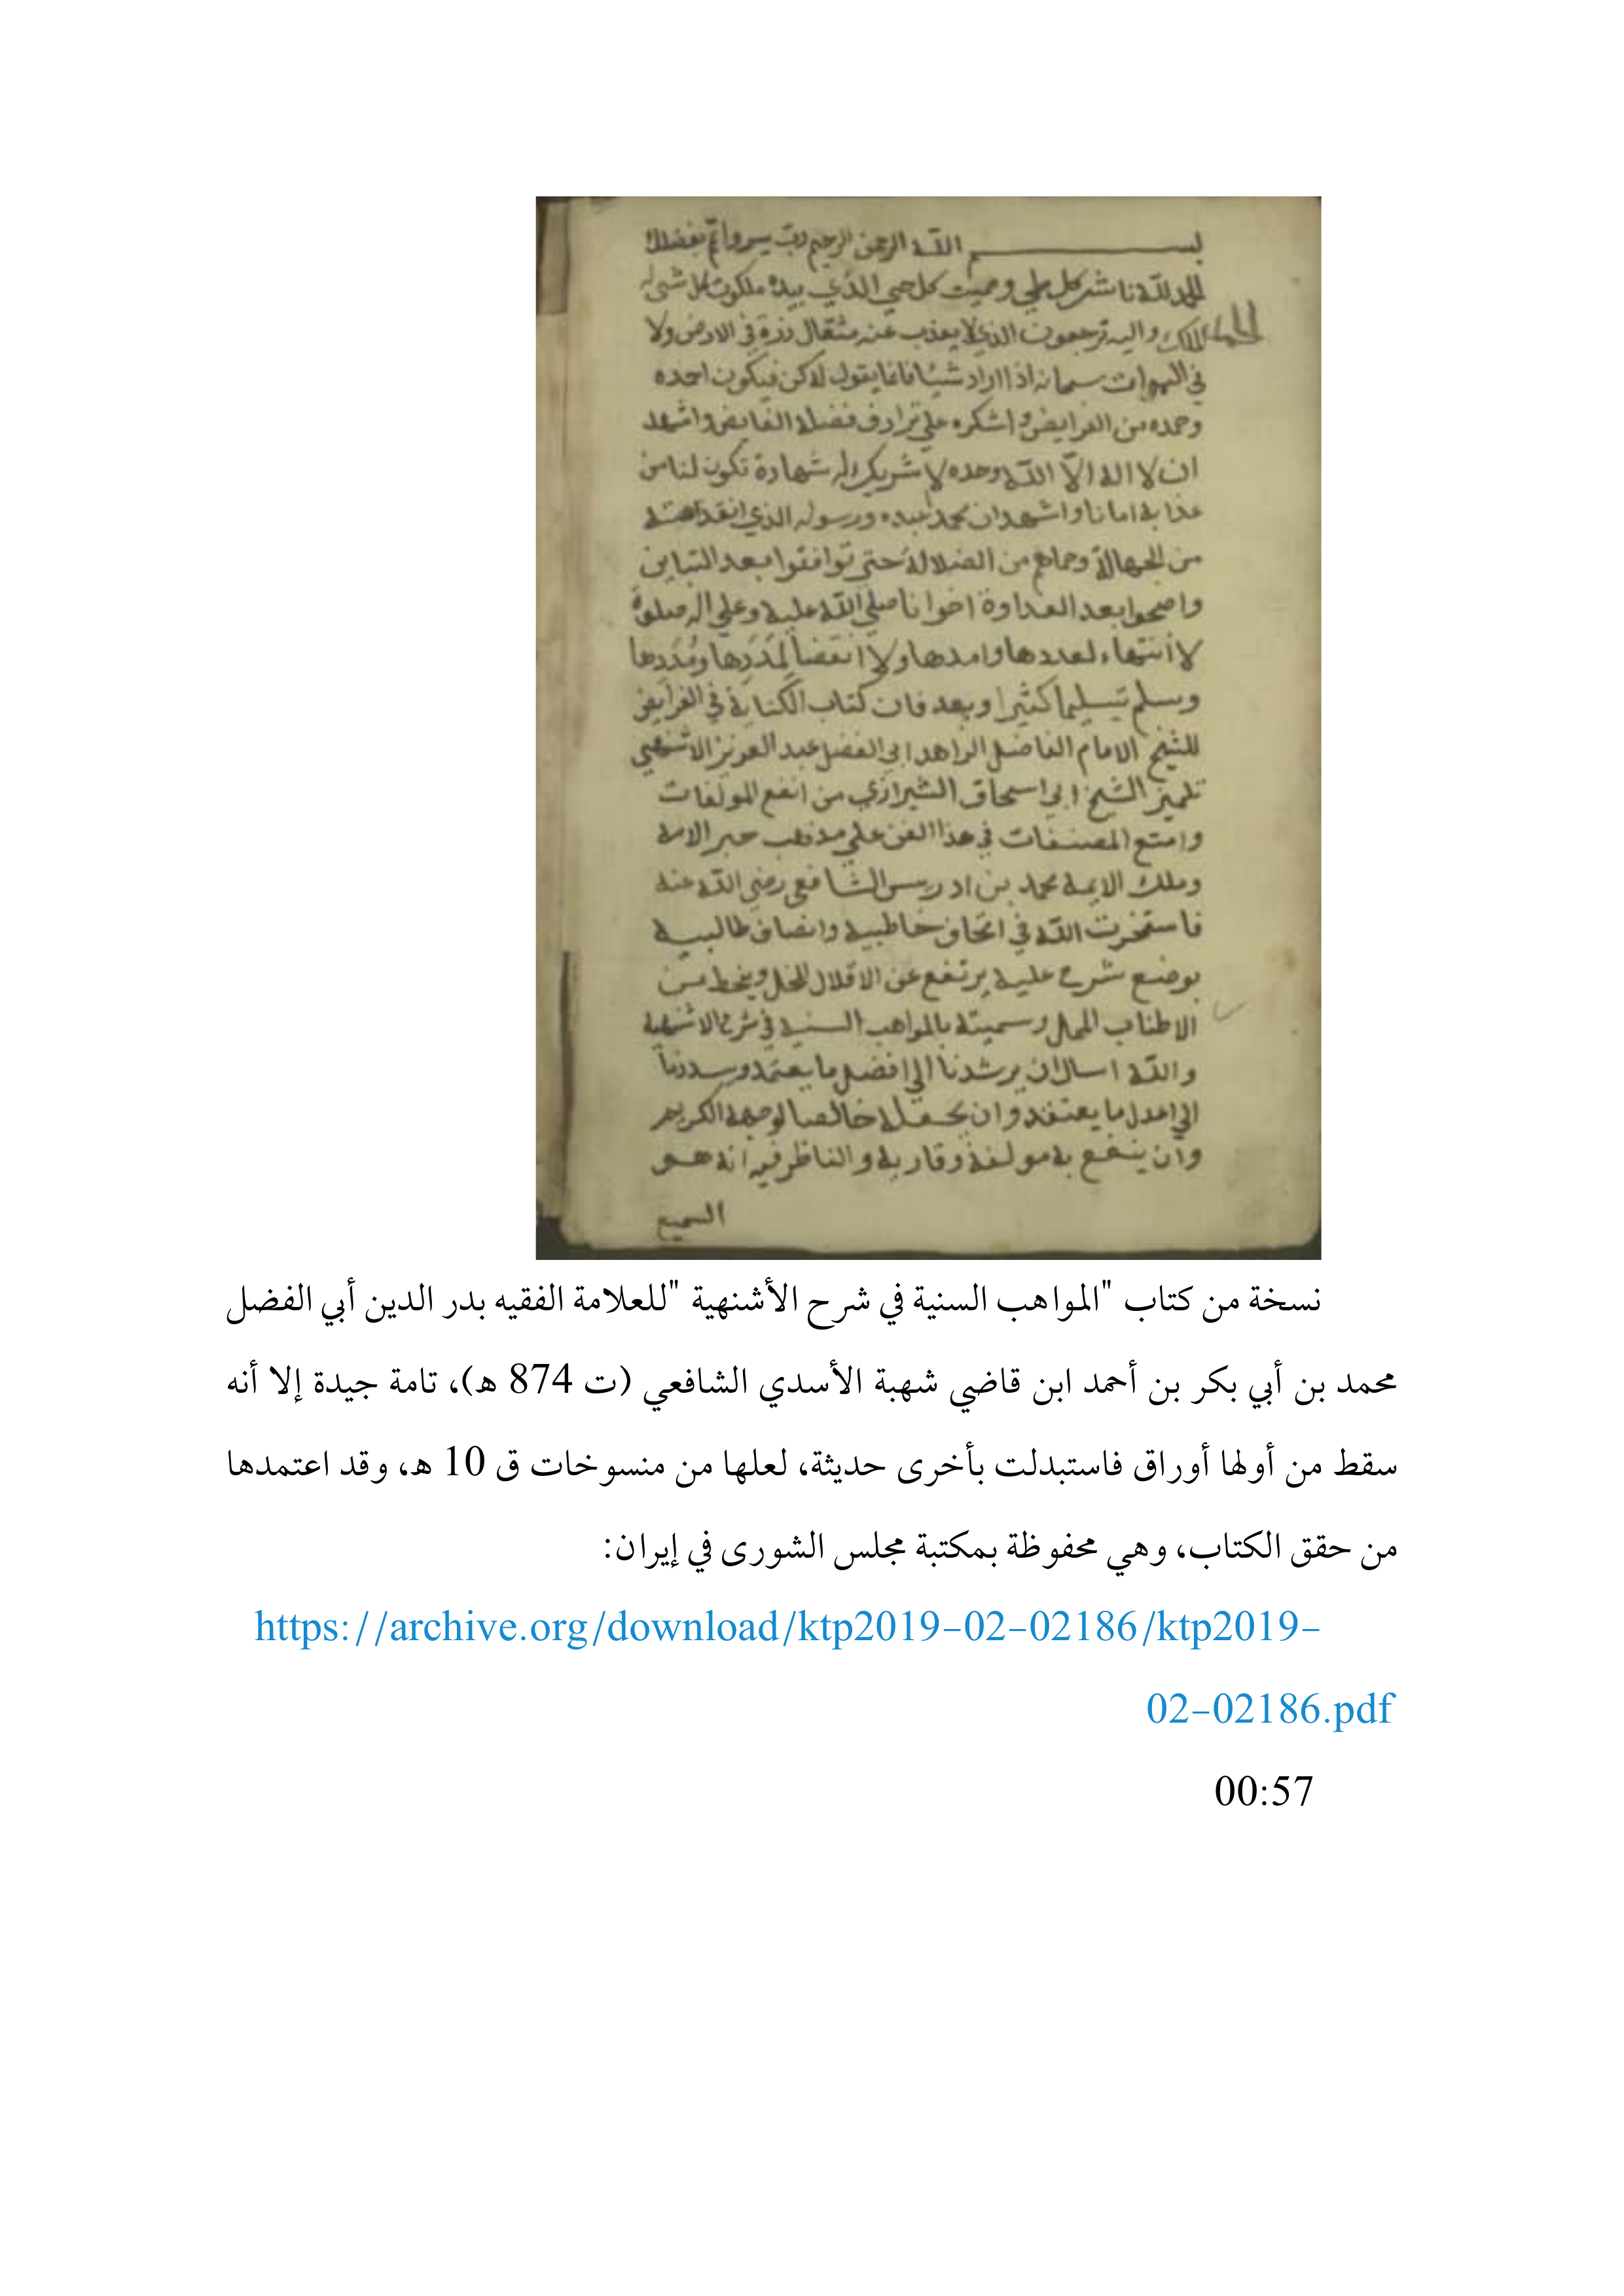 بسم الله الرحمن الرحيم رب يسر واتم بفضلك
الحمد لله ناشر كل طي ومميت كل حي الذي بيده ملكوت كل شي له
الملك واليه ترجعون الذي لا يعذب عنه مثقال ذرة في الارض ولا
في السموات سبحانه اذا اراد شيئا فانما يقول له كن فيكون احمده
وحمده من الفرايض واشكره علي ترادف فضله الفايض واشهد
ان لا اله الا الله وحده لا شريك له شهادة تكون لنا من
عذابه امانا واشهد ان محمد عبده ورسوله الذي انقذ امته
من الجهالة وحماهم من الضلالة حتي توافقوا بعد التباين
واصبحوا بعد العداوة اخوانا صلي الله عليه وعلي اله صلوة
لا أنتهاء لعددها وامدها ولا انقضا لمددها ومددها
وسلم تسليما كثيرا وبعد فان كتاب الكفاية في الفرايض
للشيخ الامام الفاضل الزاهد ابي الفضل عبد العزيز الاشنهي
تلميذ الشيخ ابي اسحاق الشيرازي من انفع المولفات
وامتع المصنفات في هذا الفن علي مذهب حبر الامة
وملك الايمة محمد بن ادريس الشافعي رضي الله عنه
فاستخرت الله في اتحاف خاطبيه وانصاف طالبيه
بوضع شرح عليه يرتفع عن الاقلال المخل وينحط من
الاطناب الممل وسميته بالمواهب السنية في شرح الاشنهية
والله اسال ان يرشدنا الي افضل ما يعتمد ويسددنا
الي اعدل ما يعتقد وان يجعله خالصا لوجهه الكريم
وان ينفع به مولفه وقاريه والناظر فيه انه هو
السميع
نسخة من كتاب "المواهب السنية في شرح الأشنهية "للعلامة الفقيه بدر الدين أبي الفضل
محمد بن أبي بكر بن أحمد ابن قاضي شهبة الأسدي الشافعي (ت 874 هـ)، تامة جيدة إلا أنه
سقط من أولها أوراق فاستبدلت بأخرى حديثة، لعلها من منسوخات ق 10 هـ، وقد اعتمدها
من حقق الكتاب، وهي محفوظة بمكتبة مجلس الشورى في إيران:
https://archive.org/download/ktp2019-02-02186/ktp2019-
02-02186.pdf
00:57